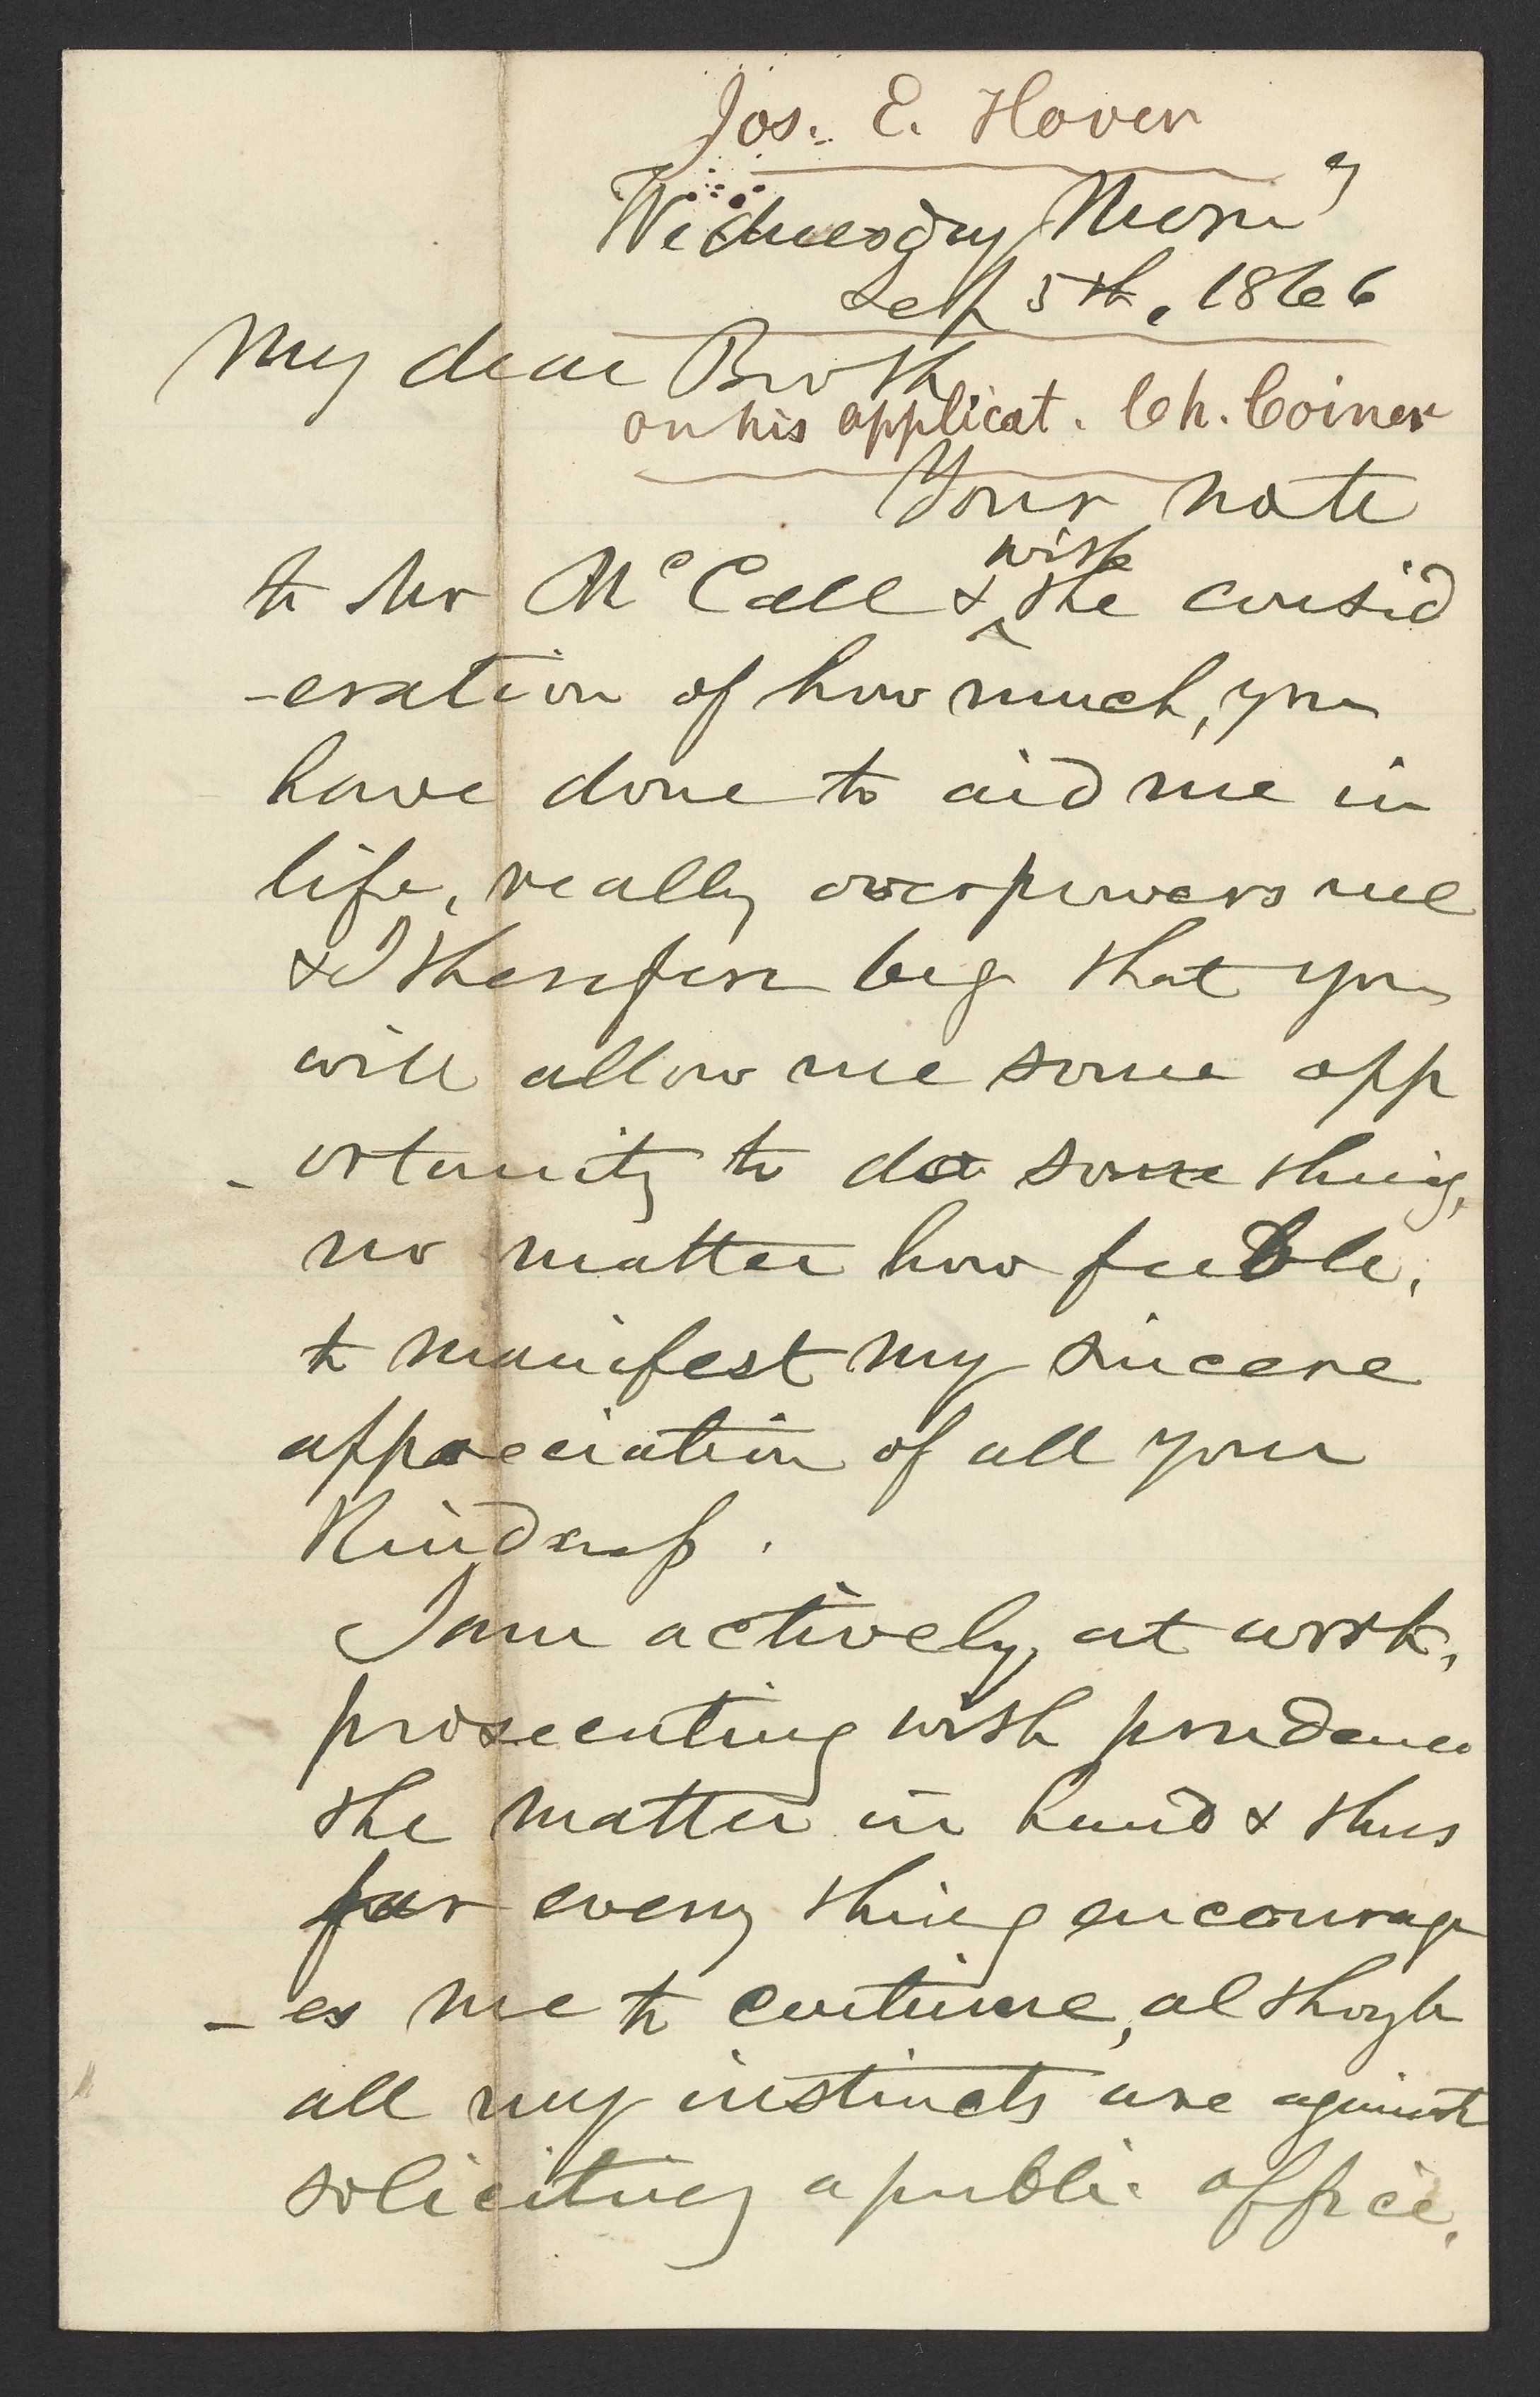 Jos. E. Hover
Wednesday Morn^g
Sep 5th, 1866
My dear Broth
on his applicat. Ch. Coiner
Your note
to Mr McCall & with the consid
-eration of how much, you
have done to aid me in
life, really overpowers me
& I therefore beg that you
will allow me some opp
-ortunity to do some thing,
no matter how feeble,
to manifest my sincere
appreciation of all your
Kindness.
I am actively, at work,
prosecuting with prudence
the matter in hand & thus
far every thing encourag
-es me to continue, although
all my instincts are against
soliciting a public office.